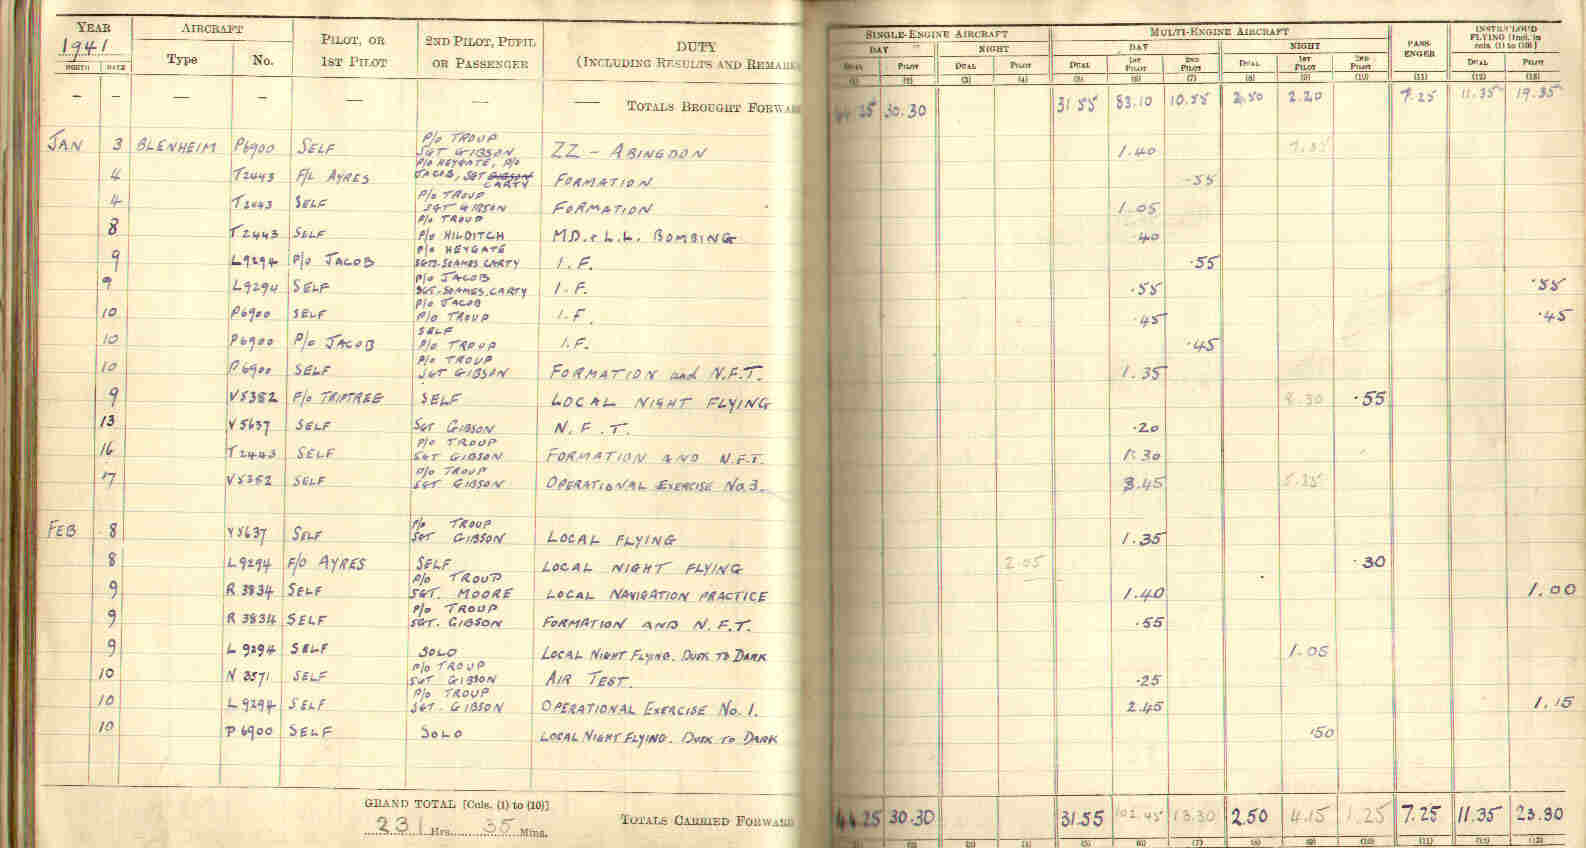 YEAR AIRCRAFT PILOT, OR 1ST PILOT 2ND PILOT, PUPIL OR PASSENGER DUTY (INCLUDING RESULTS AND REMARKS
1941 Type No.
MONTH DATE
SINGLE-ENGINE AIRCRAFT MULTI-ENGINE AIRCRAFT PASS-ENGER INSTR/CLOUD FLYING [Incl. in cols. (1) to (10)]
DAY NIGHT DAY NIGHT
DUAL PILOT DUAL PILOT DUAL 1ST PILOT 2ND PILOT DUAL 1ST PILOT 2ND PILOT DUAL PILOT
(1) (2) (3) (4) (5) (6) (7) (8) (9) (10) (11) (12) (13)
— — — — — — — TOTALS BROUGHT FORWARD 44.25 30.30 31.55 83.10 10.55 2.50 2.20 7.25 11.35 19.35
JAN 3 BLENHEIM P6900 SELF P/O TROUP SGT GIBSON ZZ – ABINGDON 1.40
4 T2443 F/L AYRES P/O HEYGATE, P/O JACOB, SGT GIBSON CARTY FORMATION ·55
4 T2443 SELF P/O TROUP SGT GIBSON FORMATION 1.05
8 T2443 SELF P/O TROUP P/O HILDITCH M.D. & L.L. BOMBING ·40
9 L9294 P/O JACOB P/O HEYGATE SGTS. SOAMES, CARTY I.F. ·55
9 L9294 SELF P/O JACOB SGT. SOAMES, CARTY I.F. ·55 ·55
10 P6900 SELF P/O JACOB P/O TROUP I.F. ·45 ·45
10 P6900 P/O JACOB SELF P/O TROUP I.F. ·45
10 P6900 SELF P/O TROUP SGT GIBSON FORMATION and N.F.T. 1.35
9 V5382 F/O TRIPTREE SELF LOCAL NIGHT FLYING ·55
13 V5637 SELF SGT GIBSON N.F.T. ·20
16 T2443 SELF P/O TROUP SGT GIBSON FORMATION AND N.F.T. 1.30
17 V5382 SELF P/O TROUP SGT GIBSON OPERATIONAL EXERCISE No.3. 3.45
FEB 8 V5637 SELF P/O TROUP SGT GIBSON LOCAL FLYING 1.35
8 L9294 F/O AYRES SELF LOCAL NIGHT FLYING 2.05 ·30
9 R3834 SELF P/O TROUP SGT. MOORE LOCAL NAVIGATION PRACTICE 1.40 1.00
9 R3834 SELF P/O TROUP SGT. GIBSON FORMATION AND N.F.T. ·55
9 L9294 SELF SOLO LOCAL NIGHT FLYING. DUSK TO DARK 1.05
10 N3571 SELF P/O TROUP SGT GIBSON AIR TEST. ·25
10 L9294 SELF P/O TROUP SGT. GIBSON OPERATIONAL EXERCISE No.1. 2.45 1.15
10 P6900 SELF SOLO LOCAL NIGHT FLYING. DUSK TO DARK ·50
GRAND TOTAL [Cols. (1) to (10)]
231 Hrs. 35 Mins.
TOTALS CARRIED FORWARD 44.25 30.30 31.55 102.45 13.30 2.50 4.15 1.25 7.25 11.35 23.30
(1) (2) (3) (4) (5) (6) (7) (8) (9) (10) (11) (12) (13)